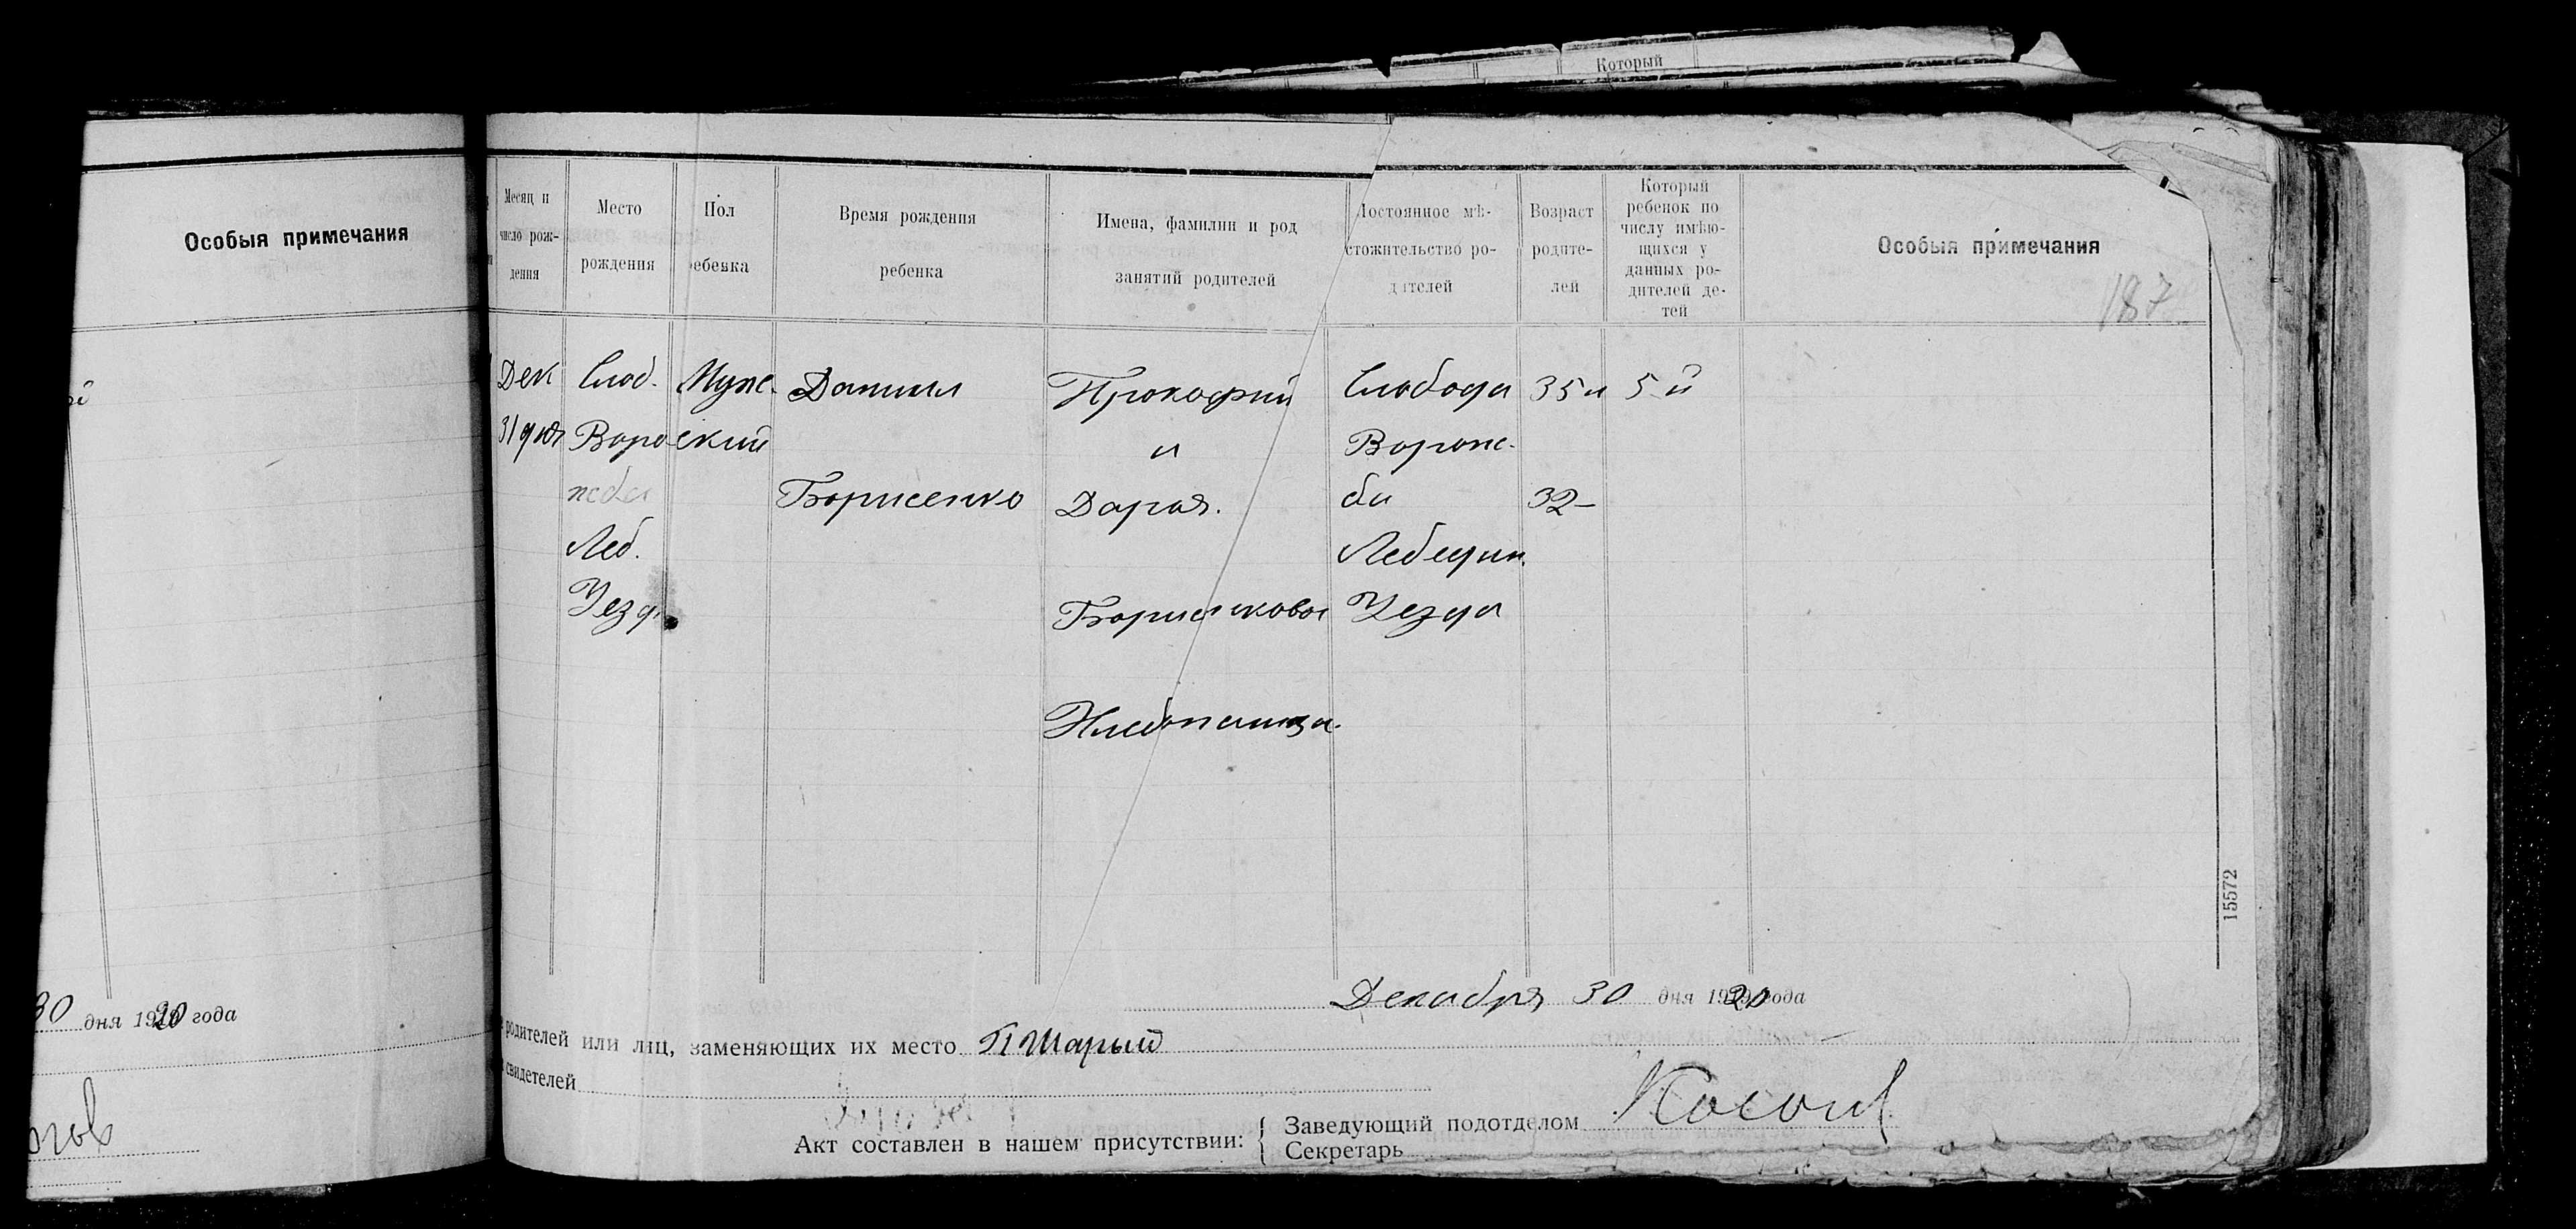 Который
Особыя примечания
30 дня 1920 года
Месяц и число рож-
дения
Место
рождения
Пол
ребенка
Время рождения
ребенка
Имена, фамилии и род
занятий родителей
Постоянное мѣ-
стожительство ро-
дителей
Возраст
родите-
лей
Который
ребенок по
числу имѣю-
щихся у
данных ро-
дителей де-
тей
Особыя примечания
187
Дек
31 дня
Слод.
Воро
жба
Леб.
Уезд
Муже.
ский
Даниил
Борисенко
Прокофий
и
Дария.
Борисенковы
Хлебопашцы.
Слобода
Ворож-
бы
Лебедин.
Уезда
35 л
32-
5-й
15572
Декабря 30 дня 1920 года
родителей или лиц, заменяющих их место П Шарый
свидетелей
Акт составлен в нашем присутствии:
Заведующий подотделом
Секретарь